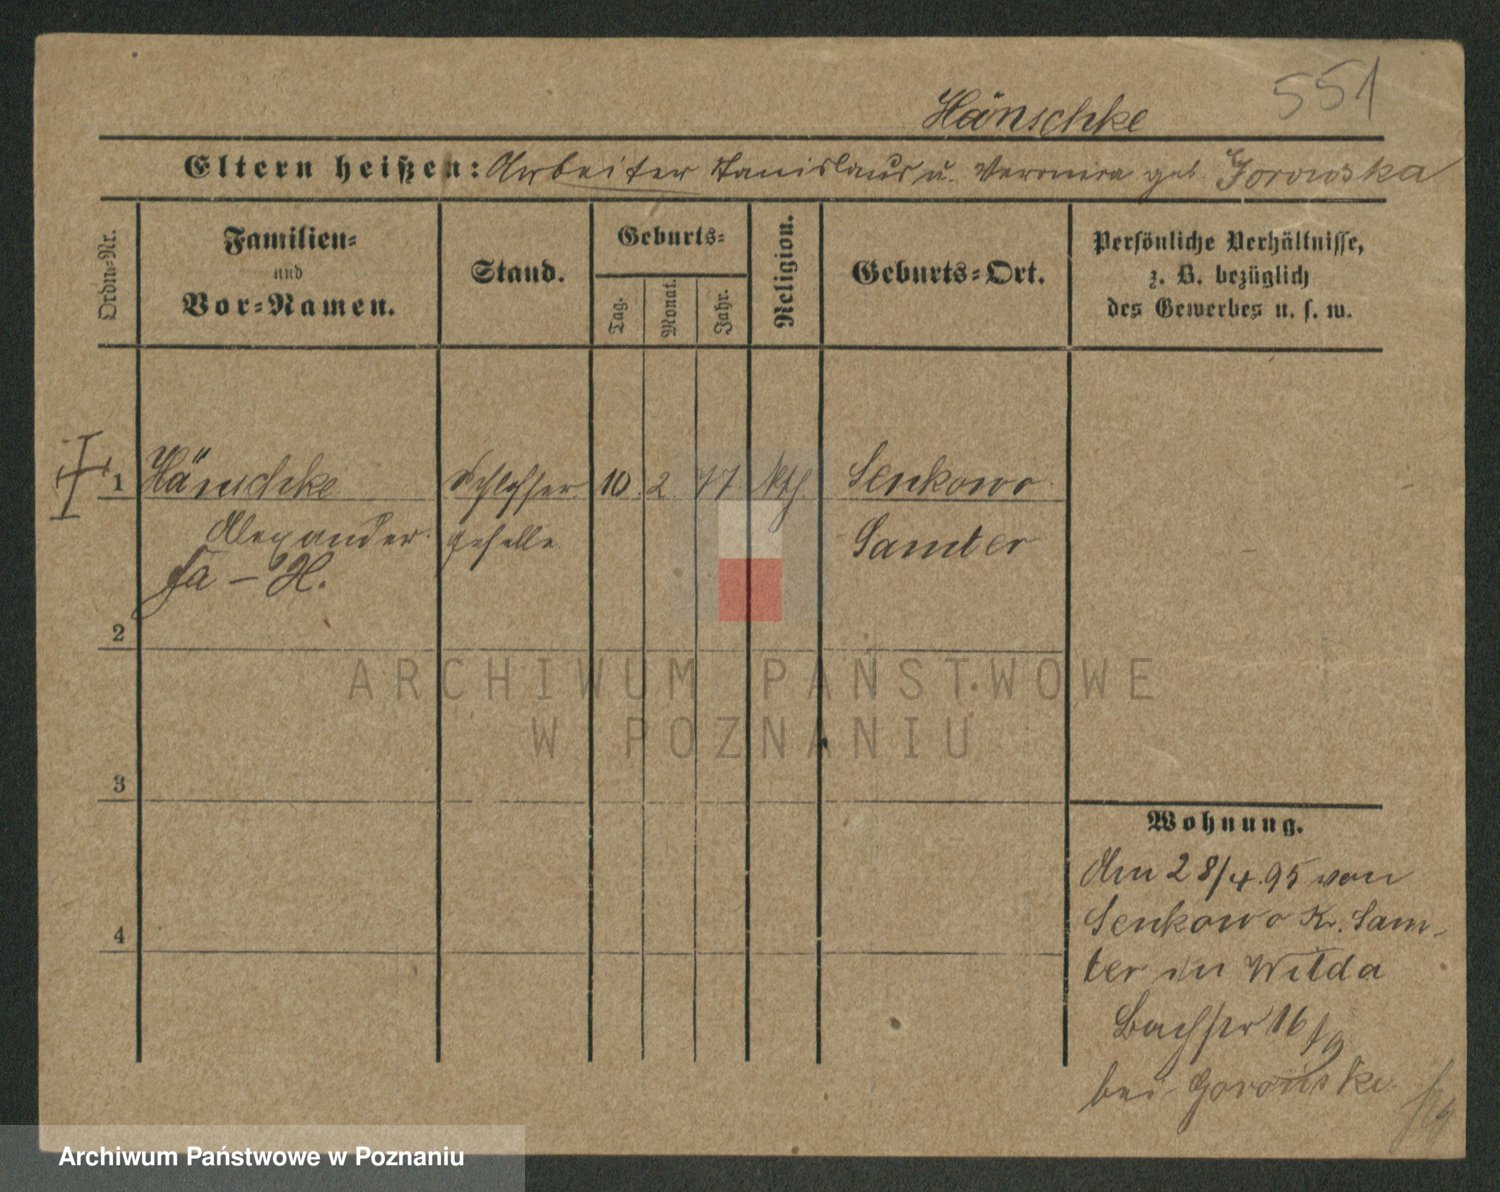 551
Hänschke
Eltern heißen: Arbeiter Stanislaus u. Veronica geb Gorowska
Ordn=Nr.
Familien=
und
Vor=Namen.
Stand.
Geburts=
Tag.
Monat.
Jahr.
Religion.
Geburts=Ort.
Persönliche Verhältnisse,
z. B. bezüglich
des Gewerbes u. s. w.
1 Hänschke Schlosser 10. 2. 77 kth. Senkowo
Alexander geselle Samter
Fa – H.
2
3
4
Wohnung.
Am 28/4.95 von
Senkowo Kr. Sam-
ter in Wilda
Bachstr 16
bei Gorowski
ARCHIWUM PAŃSTWOWE
W POZNANIU
Archiwum Państwowe w Poznaniu